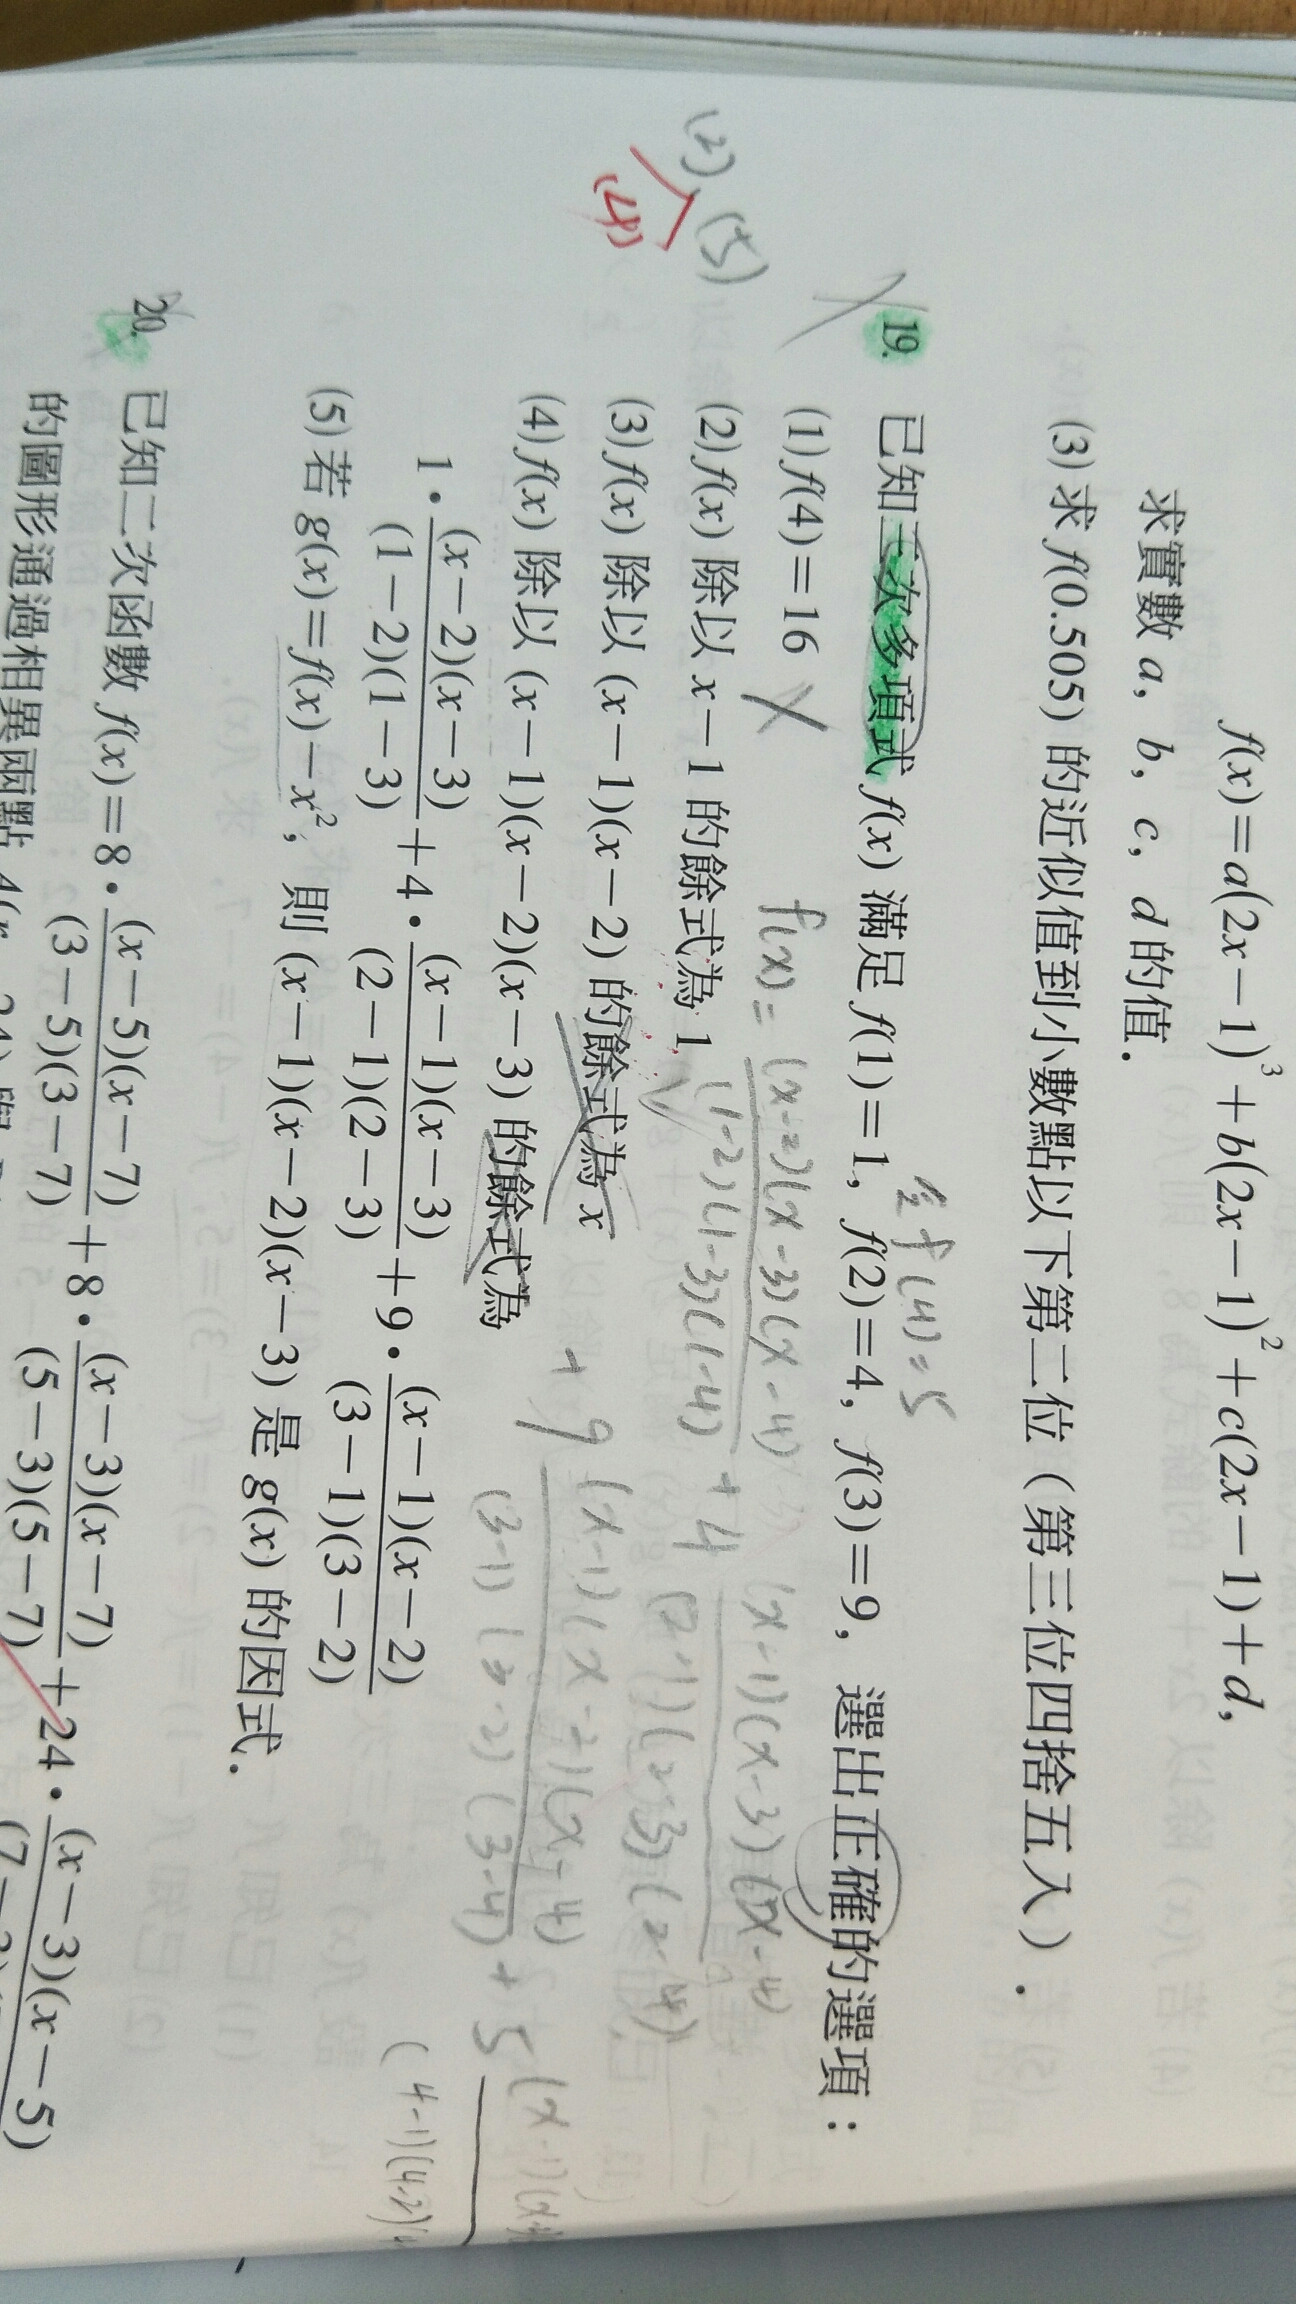 f(x)=a(2x-1)³+b(2x-1)²+c(2x-1)+d,
求實數 a, b, c, d 的值.
(3)求 f(0.505) 的近似值到小數點以下第二位（第三位四捨五入）.
(2), (5)
(4)
19. 已知三次多項式 f(x) 滿足 f(1)=1, f(2)=4, f(3)=9, 選出正確的選項：
f(4)=5
(1)f(4)=16
f(x)= (x-2)(x-3)(x-4) / (1-2)(1-3)(1-4) + 4 (x-1)(x-3)(x-4) / (2-1)(2-3)(2-4)
(2)f(x) 除以 x-1 的餘式為 1
(3)f(x) 除以 (x-1)(x-2) 的餘式為 x
+ 9 (x-1)(x-2)(x-4) / (3-1)(3-2)(3-4) + 5
(4)f(x) 除以 (x-1)(x-2)(x-3) 的餘式為
1 · (x-2)(x-3) / (1-2)(1-3) + 4 · (x-1)(x-3) / (2-1)(2-3) + 9 · (x-1)(x-2) / (3-1)(3-2)
(5)若 g(x)=f(x)-x², 則 (x-1)(x-2)(x-3) 是 g(x) 的因式.
20. 已知二次函數 f(x)=8 · (x-5)(x-7) / (3-5)(3-7) + 8 · (x-3)(x-7) / (5-3)(5-7) + 24 · (x-3)(x-5)
的圖形通過相異兩點